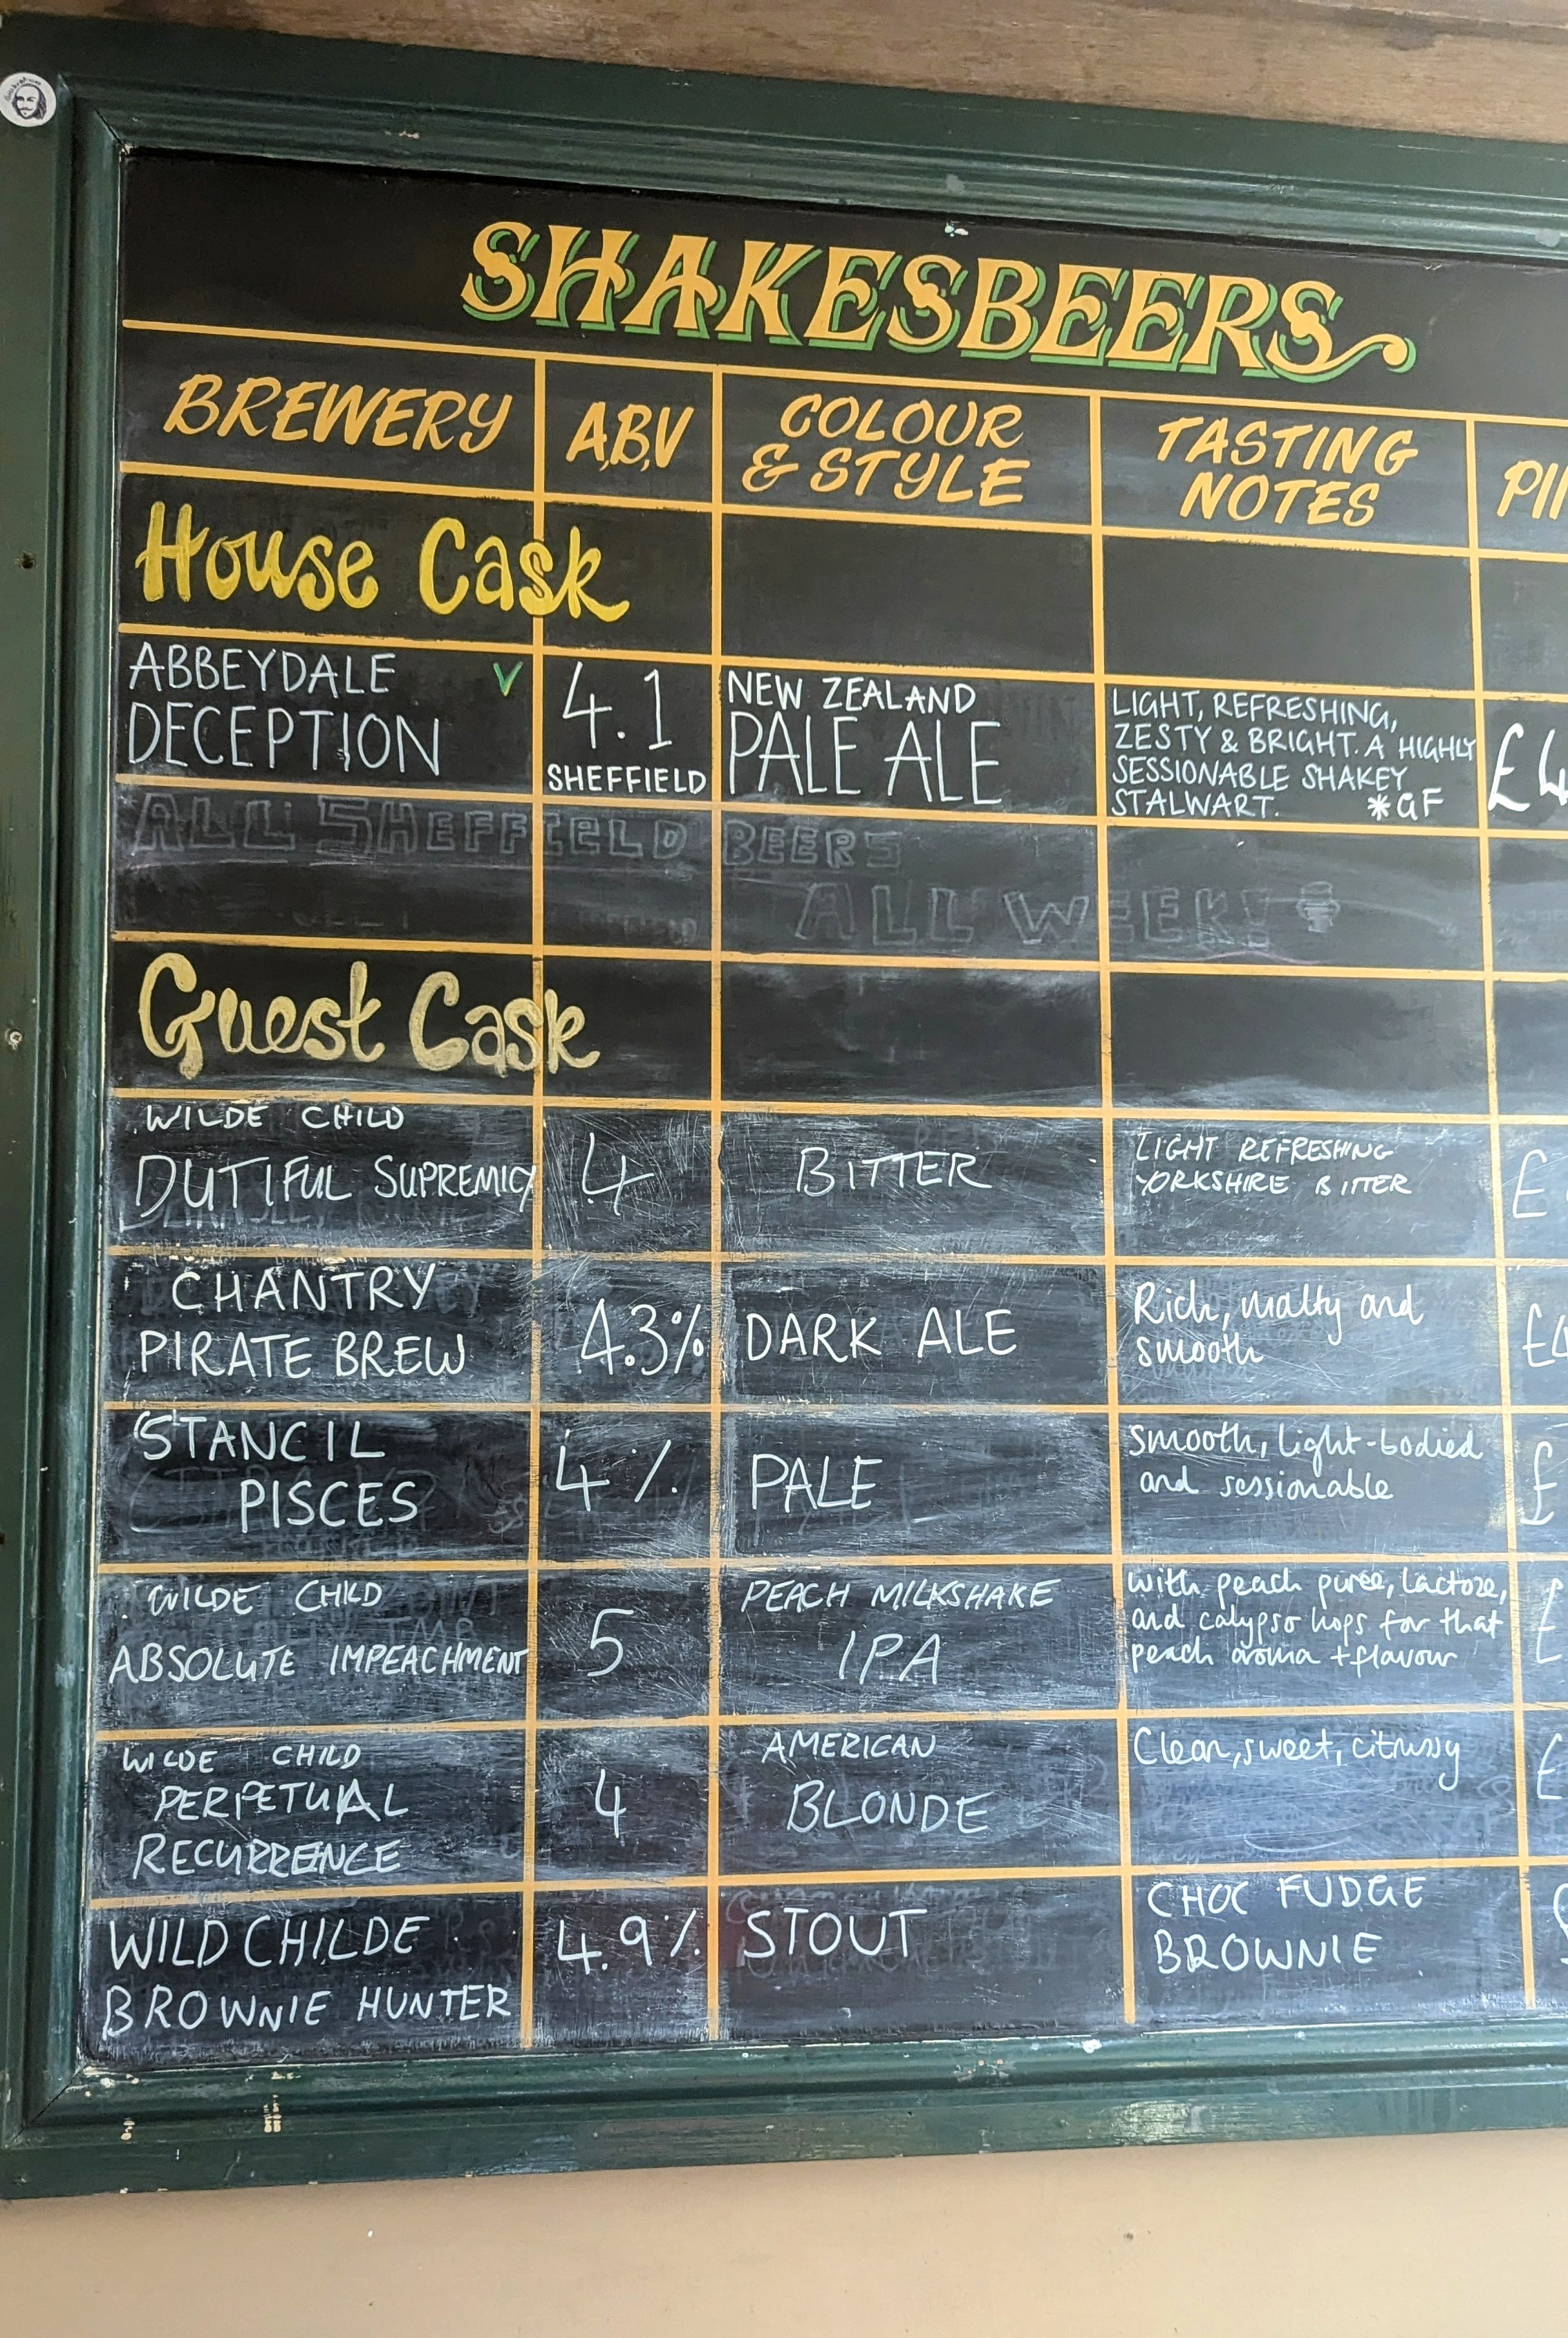 SHAKESBEERS
BREWERY
A,B,V
COLOUR
& STYLE
TASTING
NOTES
House Cask
ABBEYDALE V
DECEPTION
4.1
SHEFFIELD
NEW ZEALAND
PALE ALE
LIGHT, REFRESHING,
ZESTY & BRIGHT. A HIGHLY
SESSIONABLE SHAKEY
STALWART. *GF
£4
ALL SHEFFIELD BEERS
ALL WEEK!
Guest Cask
WILDE CHILD
DUTIFUL SUPREMICY
4
BITTER
LIGHT REFRESHING
YORKSHIRE BITTER
£
CHANTRY
PIRATE BREW
4.3%
DARK ALE
Rich, malty and
smooth
£4
STANCIL
PISCES
4%
PALE
smooth, light-bodied
and sessionable
£
WILDE CHILD
ABSOLUTE IMPEACHMENT
5
PEACH MILKSHAKE
IPA
with peach puree, lactoze,
and calypso hops for that
peach aroma + flavour
£
WILDE CHILD
PERPETUAL
RECURRENCE
4
AMERICAN
BLONDE
Clean, sweet, citrussy
£
WILD CHILDE
BROWNIE HUNTER
4.9%
STOUT
CHOC FUDGE
BROWNIE